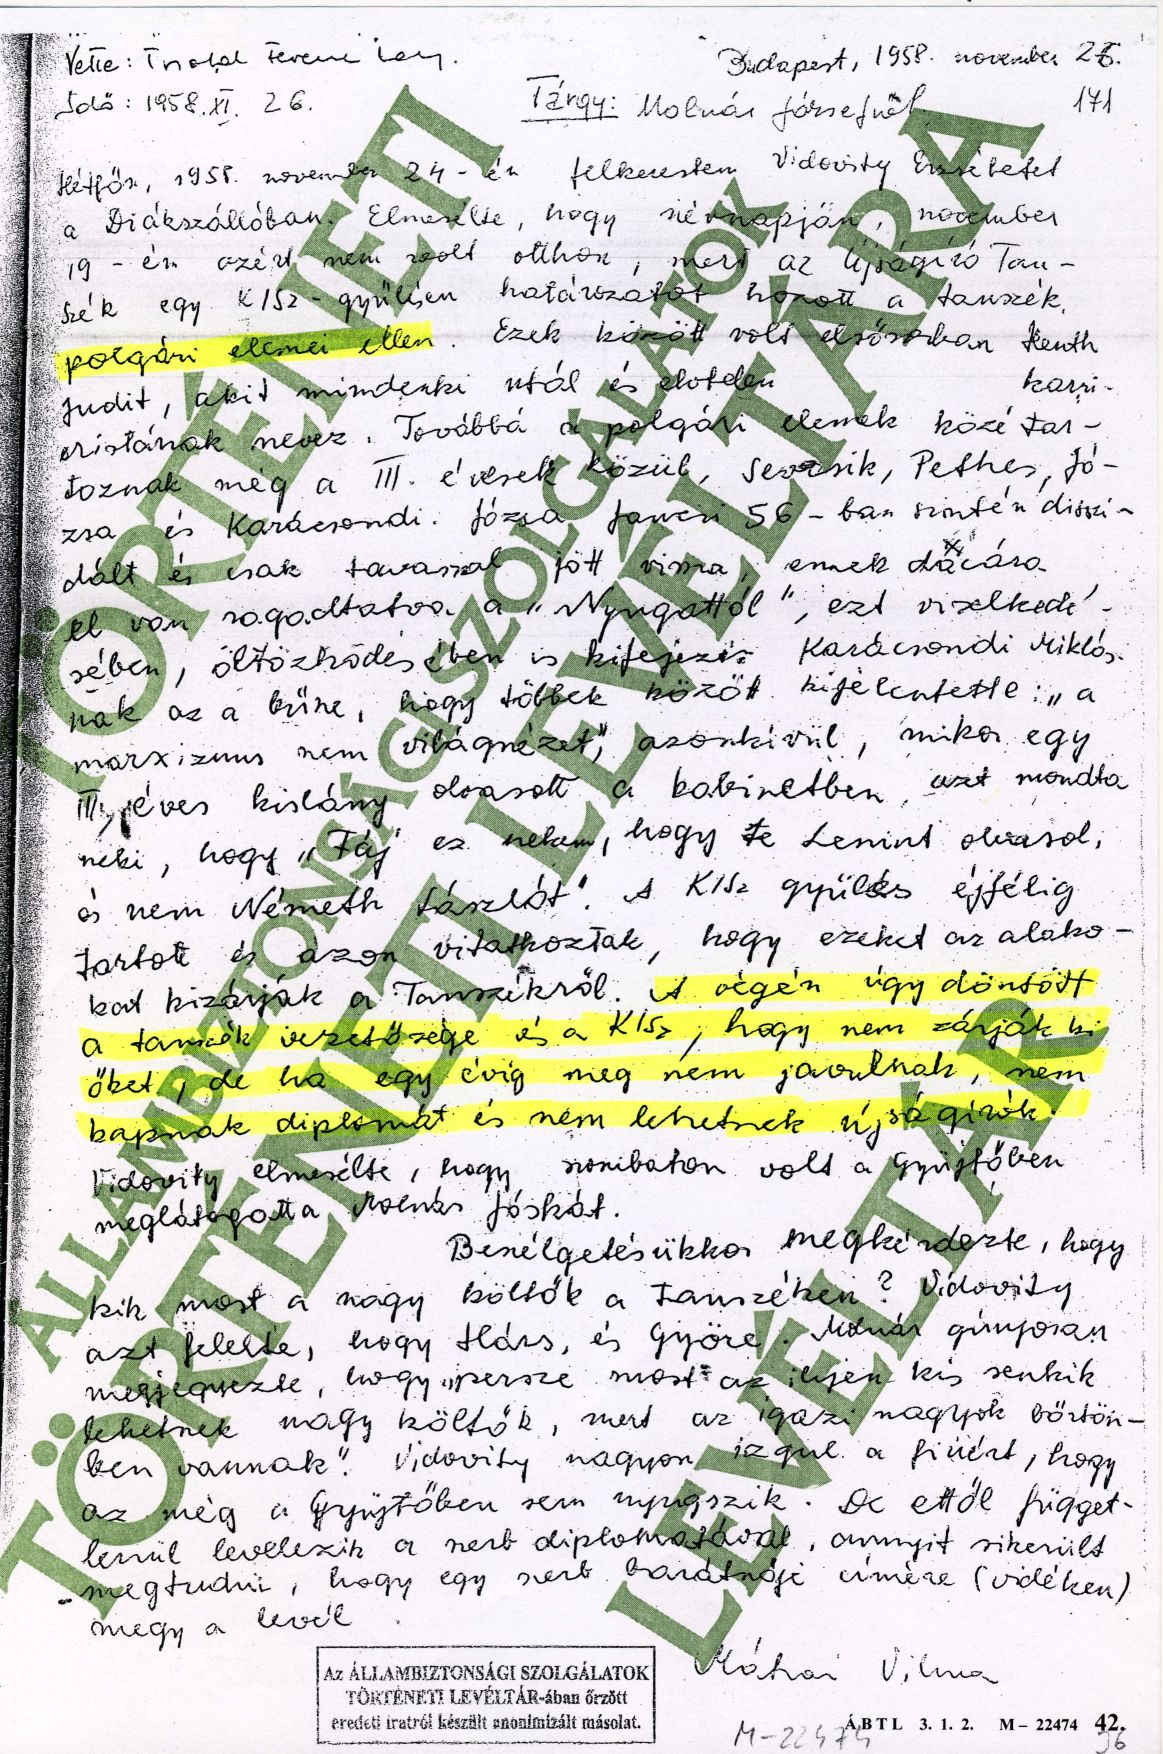 Vette: Ferenc
Budapest, 1958. november 26.
Idő: 1958. XI. 26.
Tárgy: Molnár Józsefről
171
Hétfőn, 1958. november 24-én felkerestem Vidovity Erzsébetet
a Diákszállóban. Elmesélte, hogy névnapján, november
19-én azért nem volt otthon, mert az Újságíró Tan-
szék egy KISz-gyűlésen határozatot hozott a tanszék
polgári elemei ellen. Ezek között volt elsősorban
Judit, akit mindenki utál és elvtelen karri-
eristának nevez. Továbbá a polgári elemek közé tar-
toznak még a III. évesek közül, Pethes, Jó-
zsa és Karácsondi. Józsa Jancsi 56-ban szintén disszi-
dált és csak tavasszal jött vissza, ennek dacára
el van ragadtatva a "Nyugattól", ezt viselkedé-
sében, öltözködésében is kifejezi. Karácsondi Miklós-
nak az a bűne, hogy többek között kijelentette: "a
marxizmus nem világnézet", azonkívül, mikor egy
III. éves kislány olvasott a kabinetben, azt mondta
neki, hogy "Fáj ez nekem, hogy Te Lenint olvasol,
és nem Németh Lászlót". A KISz gyűlés éjfélig
tartott és azon vitatkoztak, hogy ezeket az alako-
kat kizárják a Tanszékről. A végén úgy döntött
a tanszék vezetősége és a KISz, hogy nem zárják ki
őket, de ha egy évig meg nem javulnak, nem
kapnak diplomát és nem lehetnek újságírók.
Vidovity elmesélte, hogy szombaton volt a Gyűjtőben
meglátogatta Molnár Jóskát.
Beszélgetésükkor megkérdezte, hogy
kik most a nagy költők a Tanszéken? Vidovity
azt felelte, hogy Hárs, és Györe. Molnár gúnyosan
megjegyezte, hogy "persze most az ilyen kis senkik
lehetnek nagy költők, mert az igazi nagyok börtön-
ben vannak". Vidovity nagyon izgul a fiúért, hogy
az még a Gyűjtőben sem nyugszik. De ettől függet-
lenül levelezik a szerb diplomatával, annyit sikerült
megtudni, hogy egy szerb barátnője címére (vidéken)
megy a levél.
Máthai Vilma
Az ÁLLAMBIZTONSÁGI SZOLGÁLATOK
TÖRTÉNETI LEVÉLTÁR-ában őrzött
eredeti iratról készült anonimizált másolat.
M-22474
ÁBTL 3. 1. 2. M– 22474 42.
96
ÁLLAMBIZTONSÁGI SZOLGÁLATOK
TÖRTÉNETI LEVÉLTÁRA
TÖRTÉNETI
LEVÉLTÁR